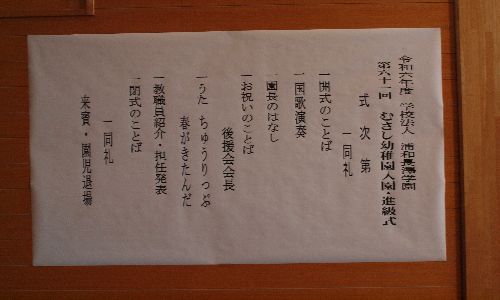 令和六年度　学校法人　浦和長澤学園
第六十一回　むさし幼稚園入園・進級式
式次第
一同礼
一開式のことば
一国歌演奏
一園長のはなし
一お祝いのことば
後援会会長
一うた　ちゅうりっぷ
春がきたんだ
一教職員紹介・担任発表
一閉式のことば
一同礼
来賓・園児退場